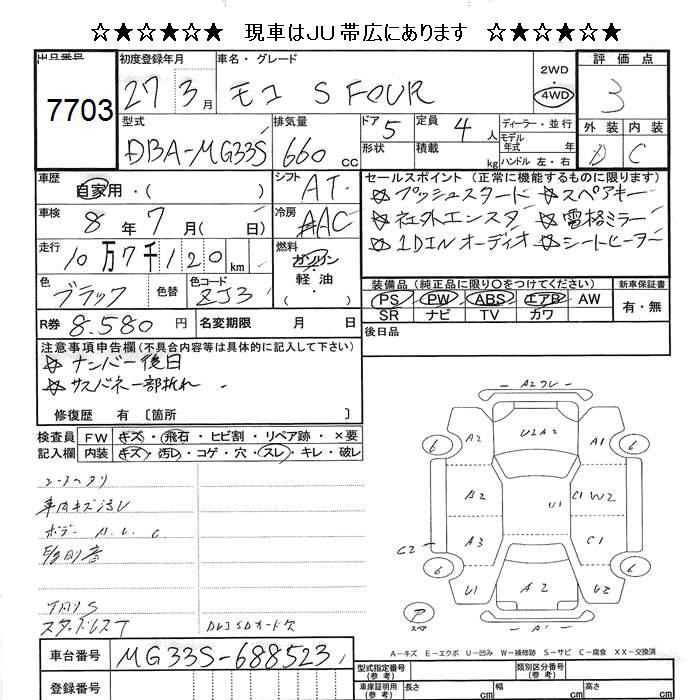 ☆★☆★☆ 現車はJU帯広にあります ☆★☆★☆
出品番号 初度登録年月 車名・グレード 2WD 4WD 評価点
7703 27 3月 モコ S FOUR 3
型式 排気量 ドア 5 定員 4人 ディーラー・並行 外装 内装
DBA-MG33S 660cc 形状 積載 kg モデル年式 年式 ハンドル 左・右 D C
車歴 自家用・( ) シフト AT セールスポイント (正常に機能するものに限ります)
☆プッシュスタート ☆スペアキー
車検 8年 7月( 日) 冷房 AAC ☆社外エンスタ ☆電格ミラー
走行 10万7千120km 燃料 ガソリン 軽油 ( ) ☆1DINオーディオ ☆シートヒーター
色 ブラック 色替 色コード ZJ3 装備品 (純正品に限り○をつけてください) 新車保証書
PS PW ABS エアB AW 有・無
SR ナビ TV カワ
R券 8.580円 名変期限 月 日 後日品
注意事項申告欄 (不具合内容等は具体的に記入して下さい)
☆ナンバー後日
☆サスバネ一部折れ
修復歴 有 〔箇所 〕
検査員 FW キズ・飛石・ヒビ割・リペア跡・×要
記入欄 内装 キズ・汚レ・コゲ・穴・スレ・キレ・破レ
車内キズ汚レ
ボデー A.U.C
下回りS
スタッドレスT
A2 U2A2 A1
6 6
A2 U1 C1 W2
C2 A3 C1
6 6
U1 A2 U2
ア スペア A1
A-キズ E-エクボ U-凹み W-補修跡 S-サビ C-腐食 XX-交換済
車台番号 MG33S-688523
型式指定番号 (参考) 類別区分番号 (参考)
登録番号 車庫証明用 (参考) 長さ cm 幅 cm 高さ cm